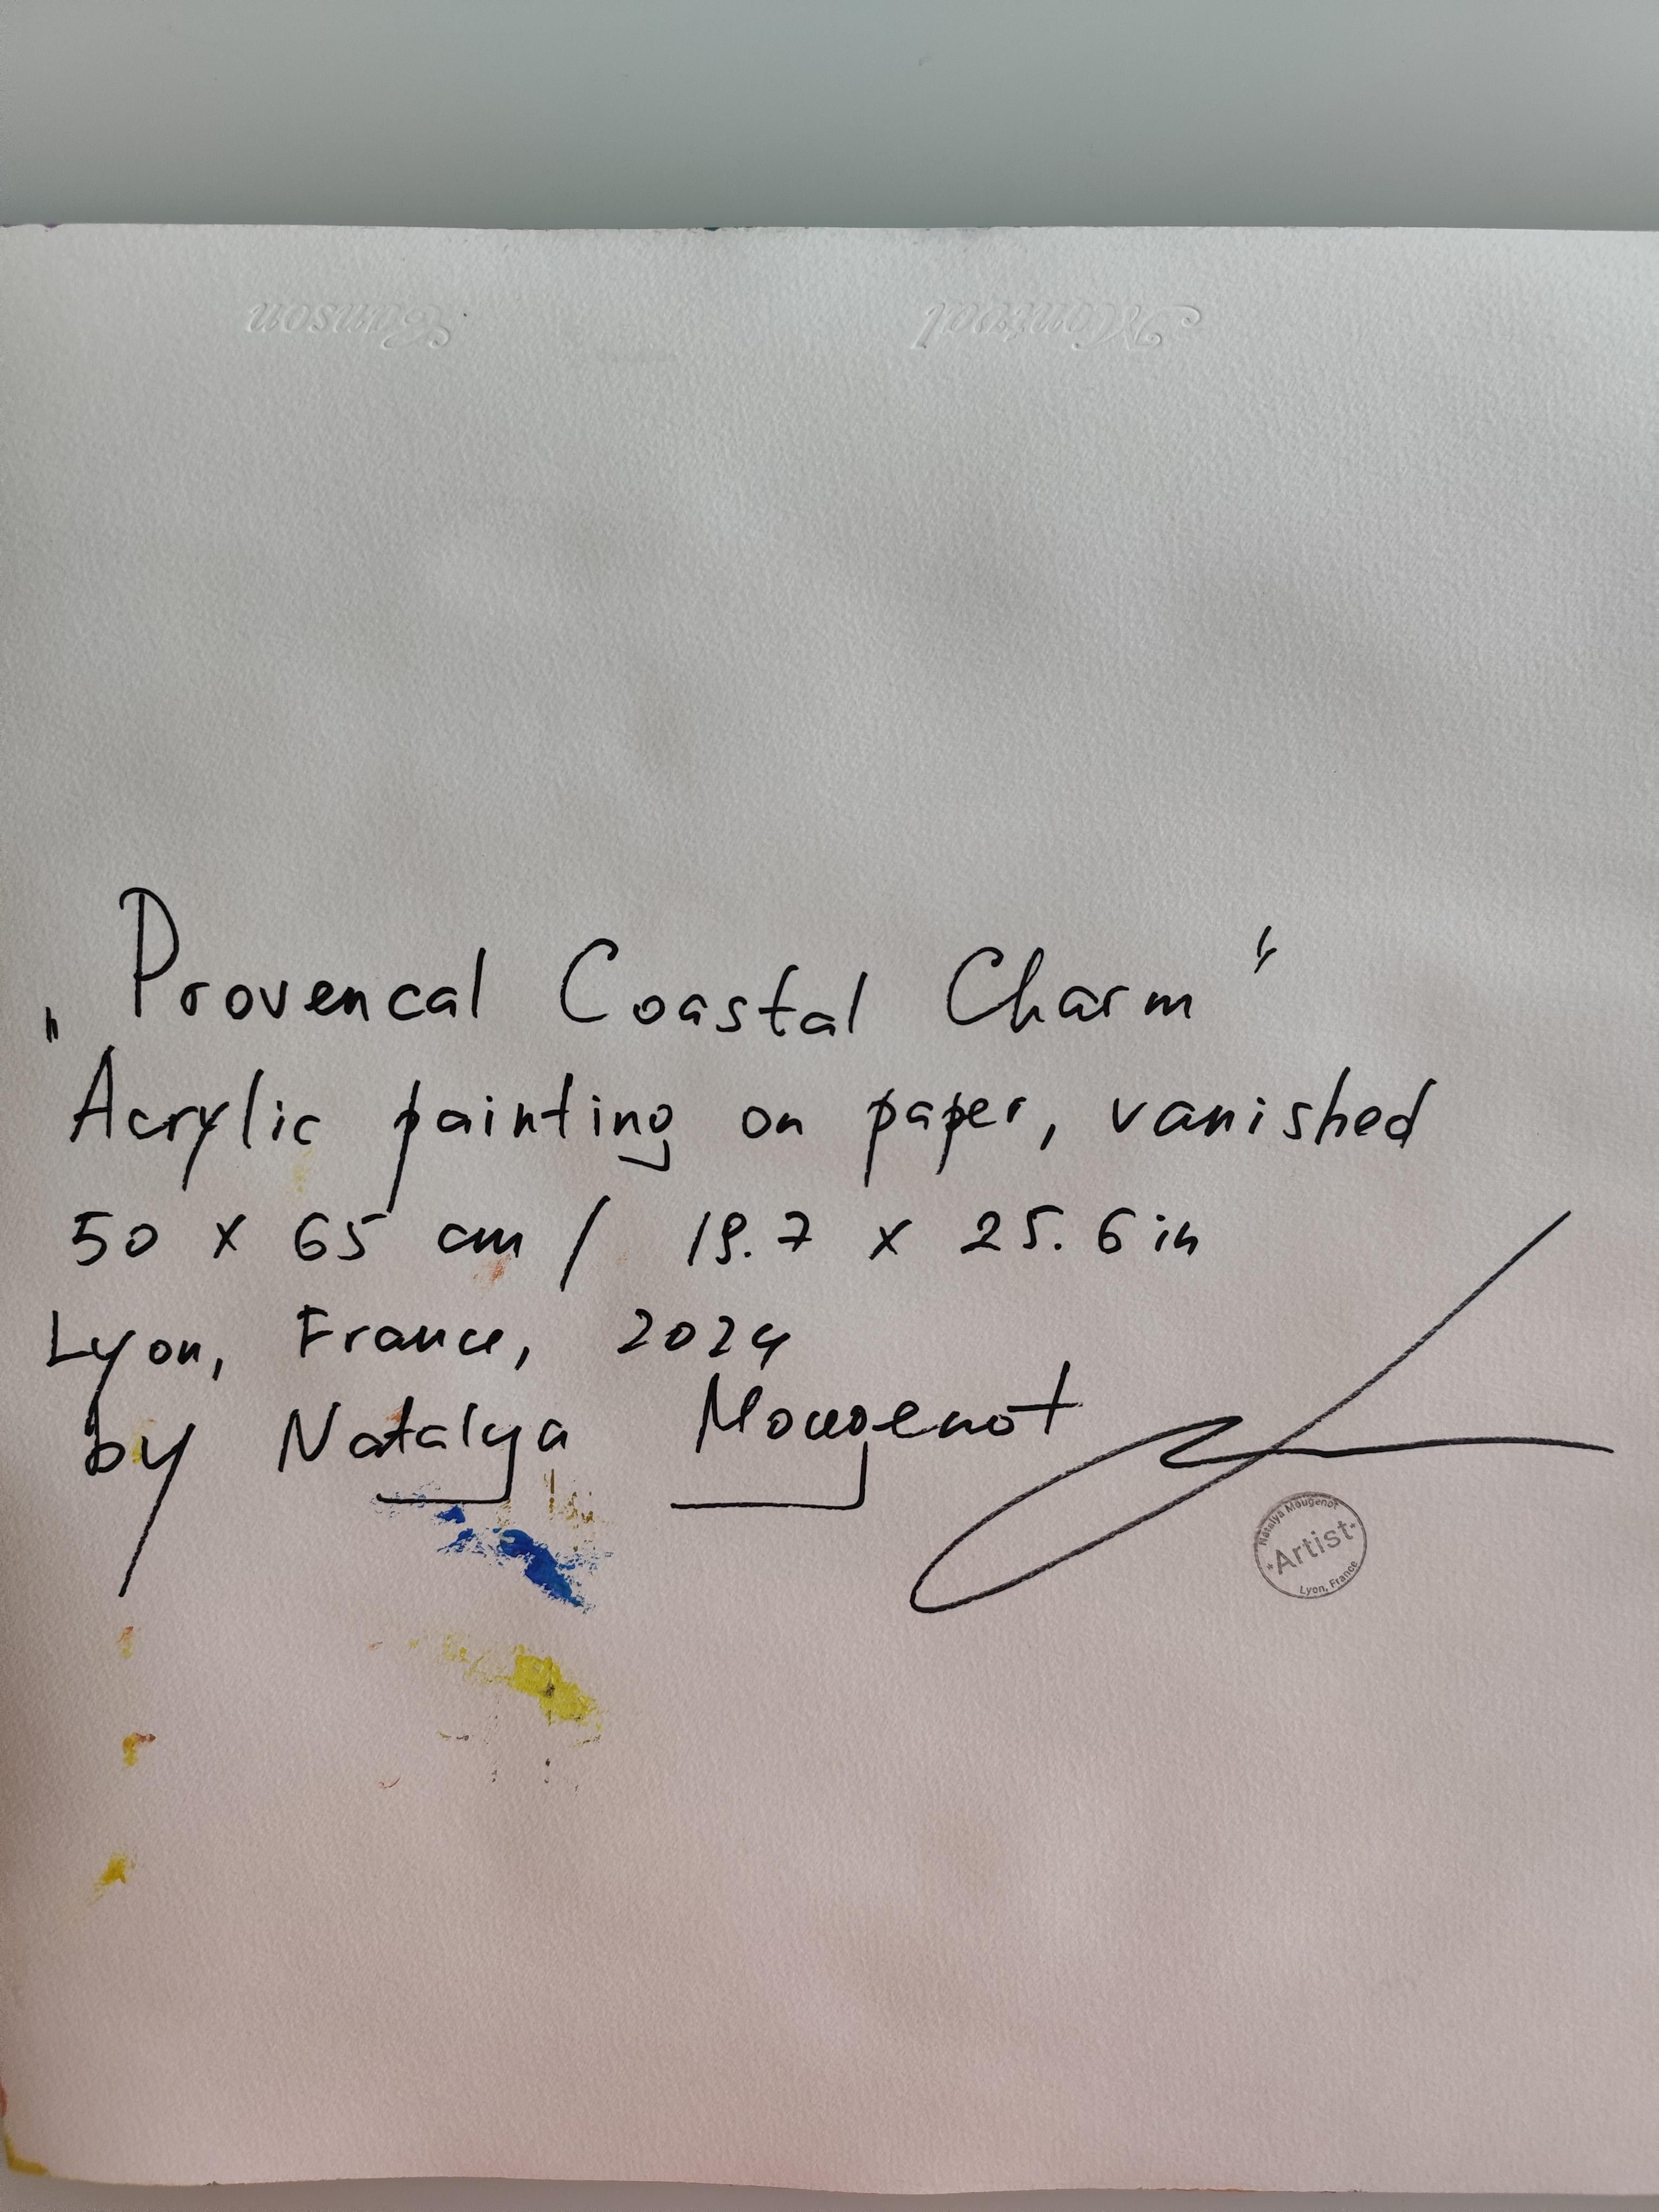 Canson Montval
„Provencal Coastal Charm"
Acrylic painting on paper, vanished
50 x 65 cm / 19.7 x 25.6 in
Lyon, France, 2024
by Natalya Mougenot
Natalya Mougenot
*Artist*
Lyon, France